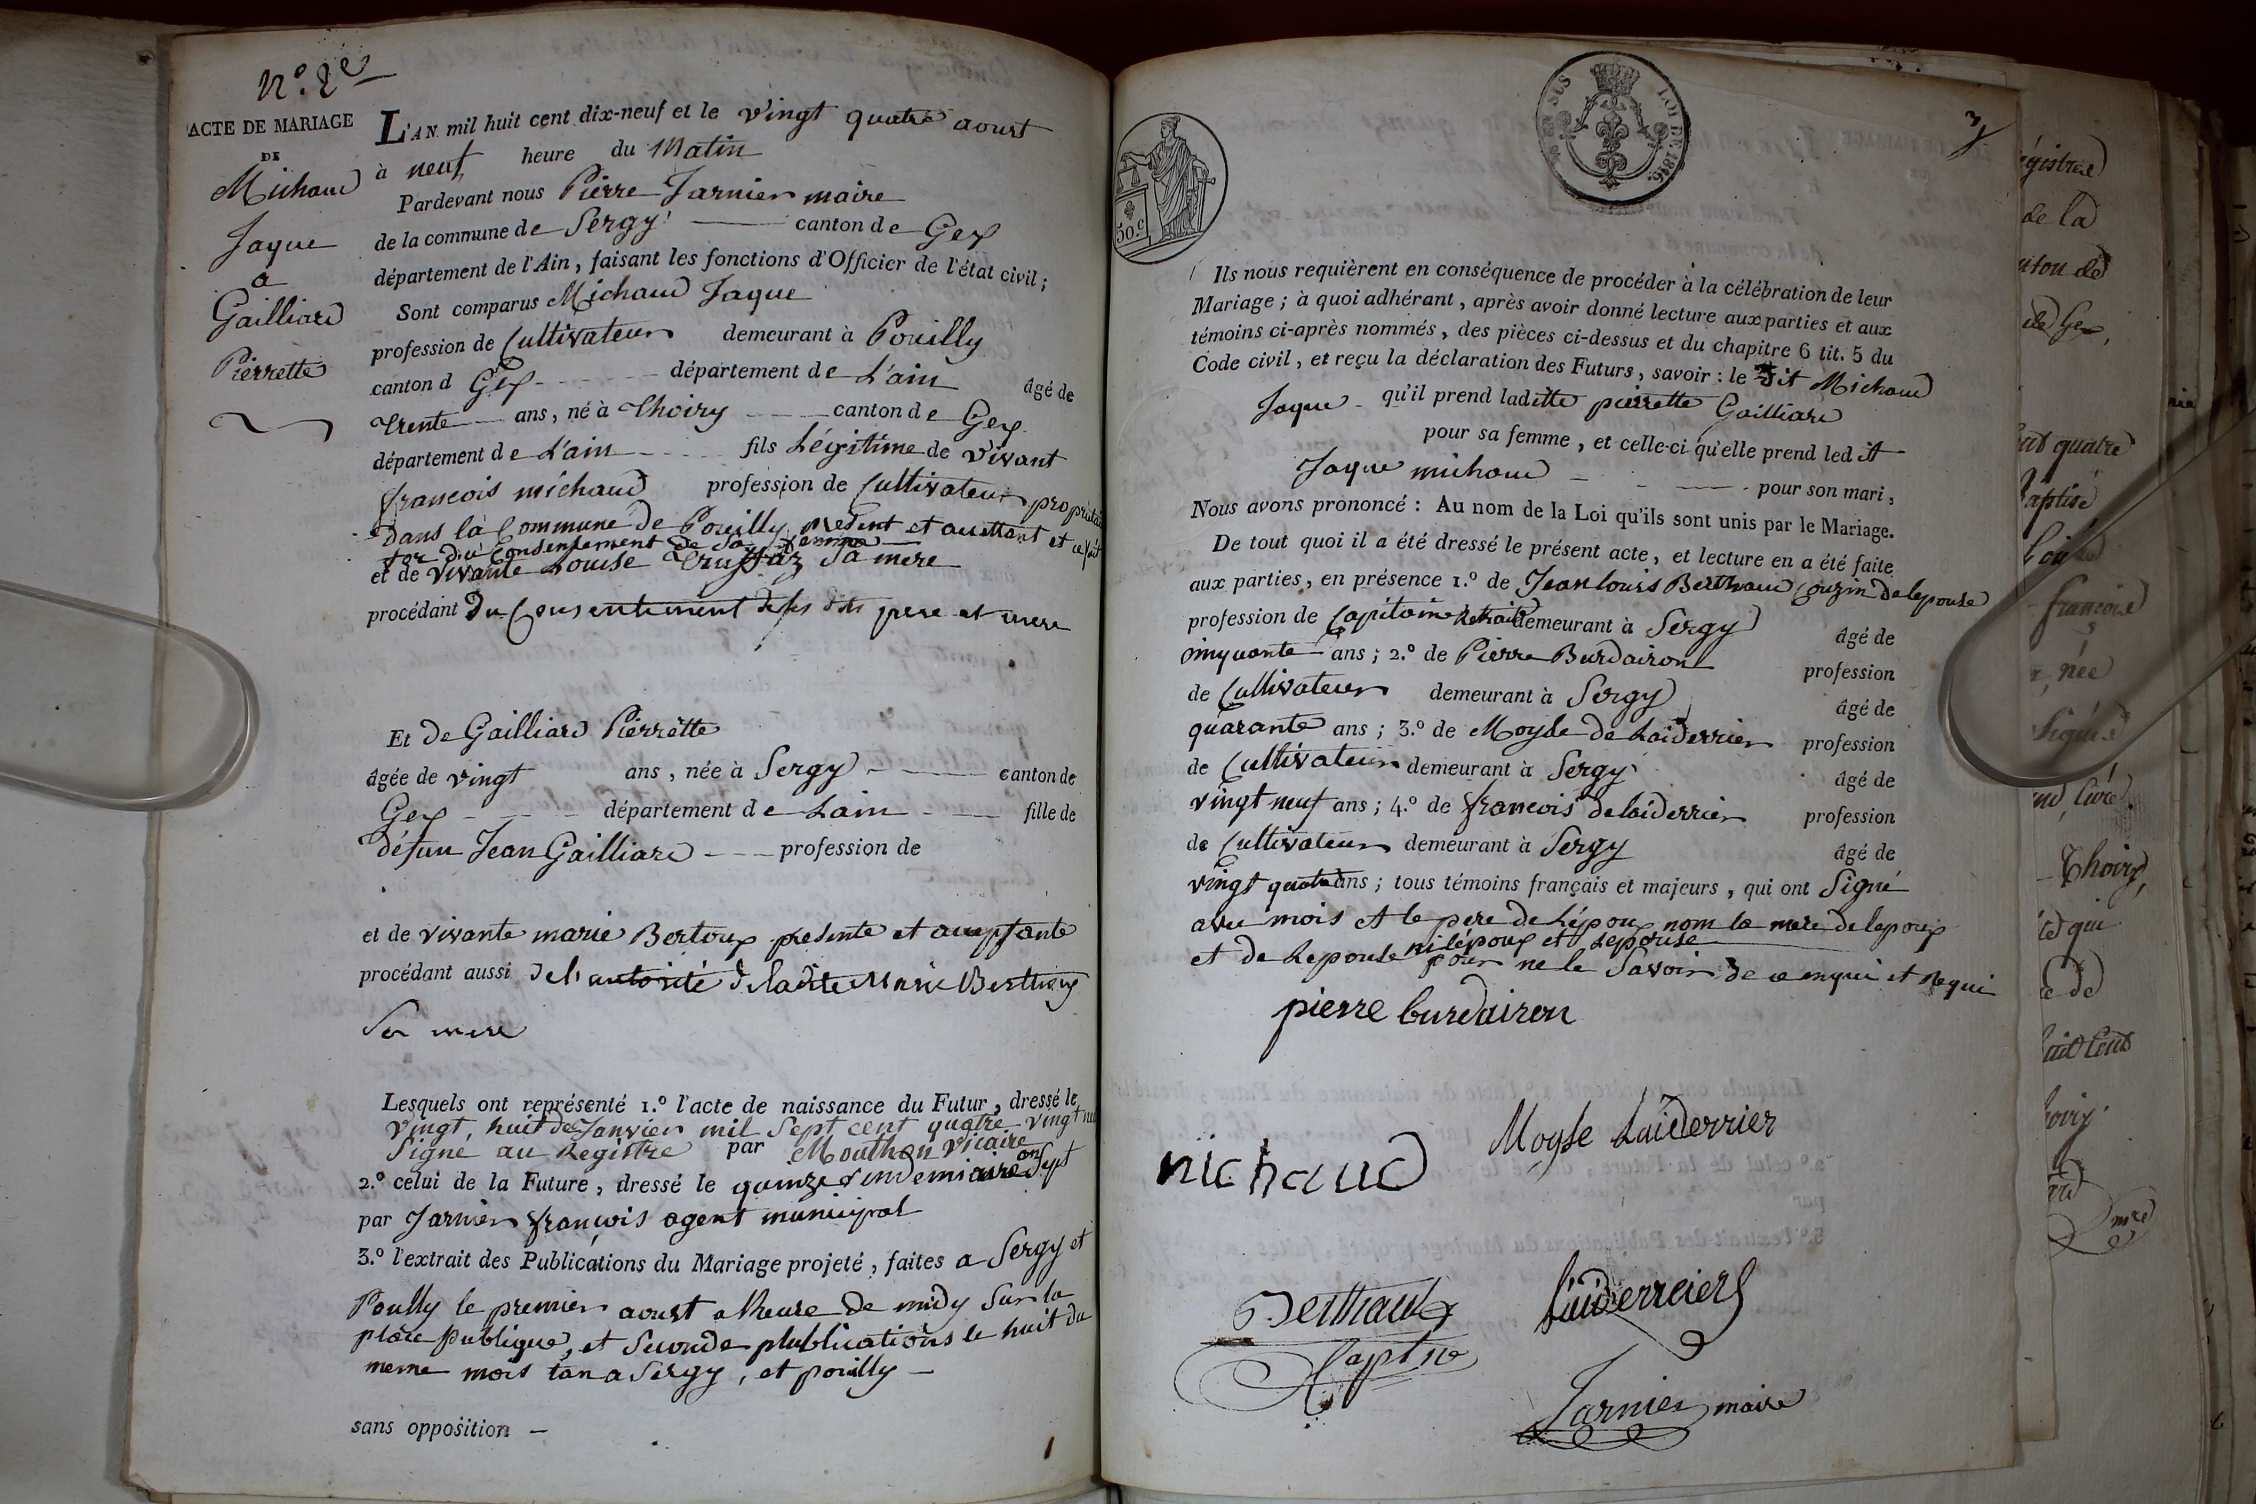 N.º 2e
ACTE DE MARIAGE
DE
Michaud
Jaque
a
Gailliard
Pierrette
L'AN mil huit cent dix-neuf et le vingt quatre aoust
à neuf heure du Matin
Pardevant nous Pierre Jarnier maire
de la commune de Sergy canton de Gex
département de l'Ain, faisant les fonctions d'Officier de l'état civil;
Sont comparus Michaud Jaque
profession de Cultivateur demeurant à Pouilly
canton d Gex département de L'ain âgé de
trente ans, né à Thoiry canton de Gex
département de L'ain fils Légitime de vivant
francois michaud profession de Cultivateur propriétaire
dans la Commune de Pouilly présent et acettant et ce fait
for du Consentement de Sa femme
et de vivante Louise Truffaz Sa mere
procédant Du Consentement de ses dits pere et mere
Et De Gailliard Pierrette
âgée de vingt ans, née à Sergy canton de
Gex département de Lain fille de
défun Jean Gailliard profession de
et de vivante marie Bertoux presente et acceptante
procédant aussi de l'autorité de ladite Marie Berthoux
Sa mere
Lesquels ont représenté 1.º l'acte de naissance du Futur, dressé le
vingt, huit de Janvier mil Sept cent quatre vingt
Signé au Registre par Mouthon vicaire
2.º celui de la Future, dressé le quinze vendemiaire an Sept
par Jarnier françois agent municipal
3.º l'extrait des Publications du Mariage projeté, faites a Sergy et
Poully le premier aoust a lheure de midy Sur la
place publique, et Seconde plublications le huit du
meme mois tan a Sergy, et pouilly
sans opposition
50.c
EN SUS
LOI DE 1816.
3
Ils nous requièrent en conséquence de procéder à la célébration de leur
Mariage; à quoi adhérant, après avoir donné lecture aux parties et aux
témoins ci-après nommés, des pièces ci-dessus et du chapitre 6 tit. 5 du
Code civil, et reçu la déclaration des Futurs, savoir: le dit Michaud
Jaque qu'il prend ladite pierrette Gailliard
pour sa femme, et celle-ci qu'elle prend ledit
Jaque michaud pour son mari,
Nous avons prononcé: Au nom de la Loi qu'ils sont unis par le Mariage.
De tout quoi il a été dressé le présent acte, et lecture en a été faite
aux parties, en présence 1.º de Jean louis Berthaud Couzin de lepouse
profession de Capitaine Retraité demeurant à Sergy âgé de
cinquante ans; 2.º de Pierre Burdairon profession
de Cultivateur demeurant à Sergy âgé de
quarante ans; 3.º de Moyse de Laiderrier profession
de Cultivateur demeurant à Sergy âgé de
vingt neuf ans; 4.º de francois delaiderrier profession
de Cultivateur demeurant à Sergy âgé de
vingt quatre ans; tous témoins français et majeurs, qui ont Signé
avec mois et le pere de Lépoux nom la mere de lepoux
et de Lepouse ni lépoux et Lepouse
pour ne le Savoir de ce enqui et Requi
pierre burdairon
Moyse Laiderrier
michaud
Berthaud
Captne
Laiderreiers
Jarnier maire